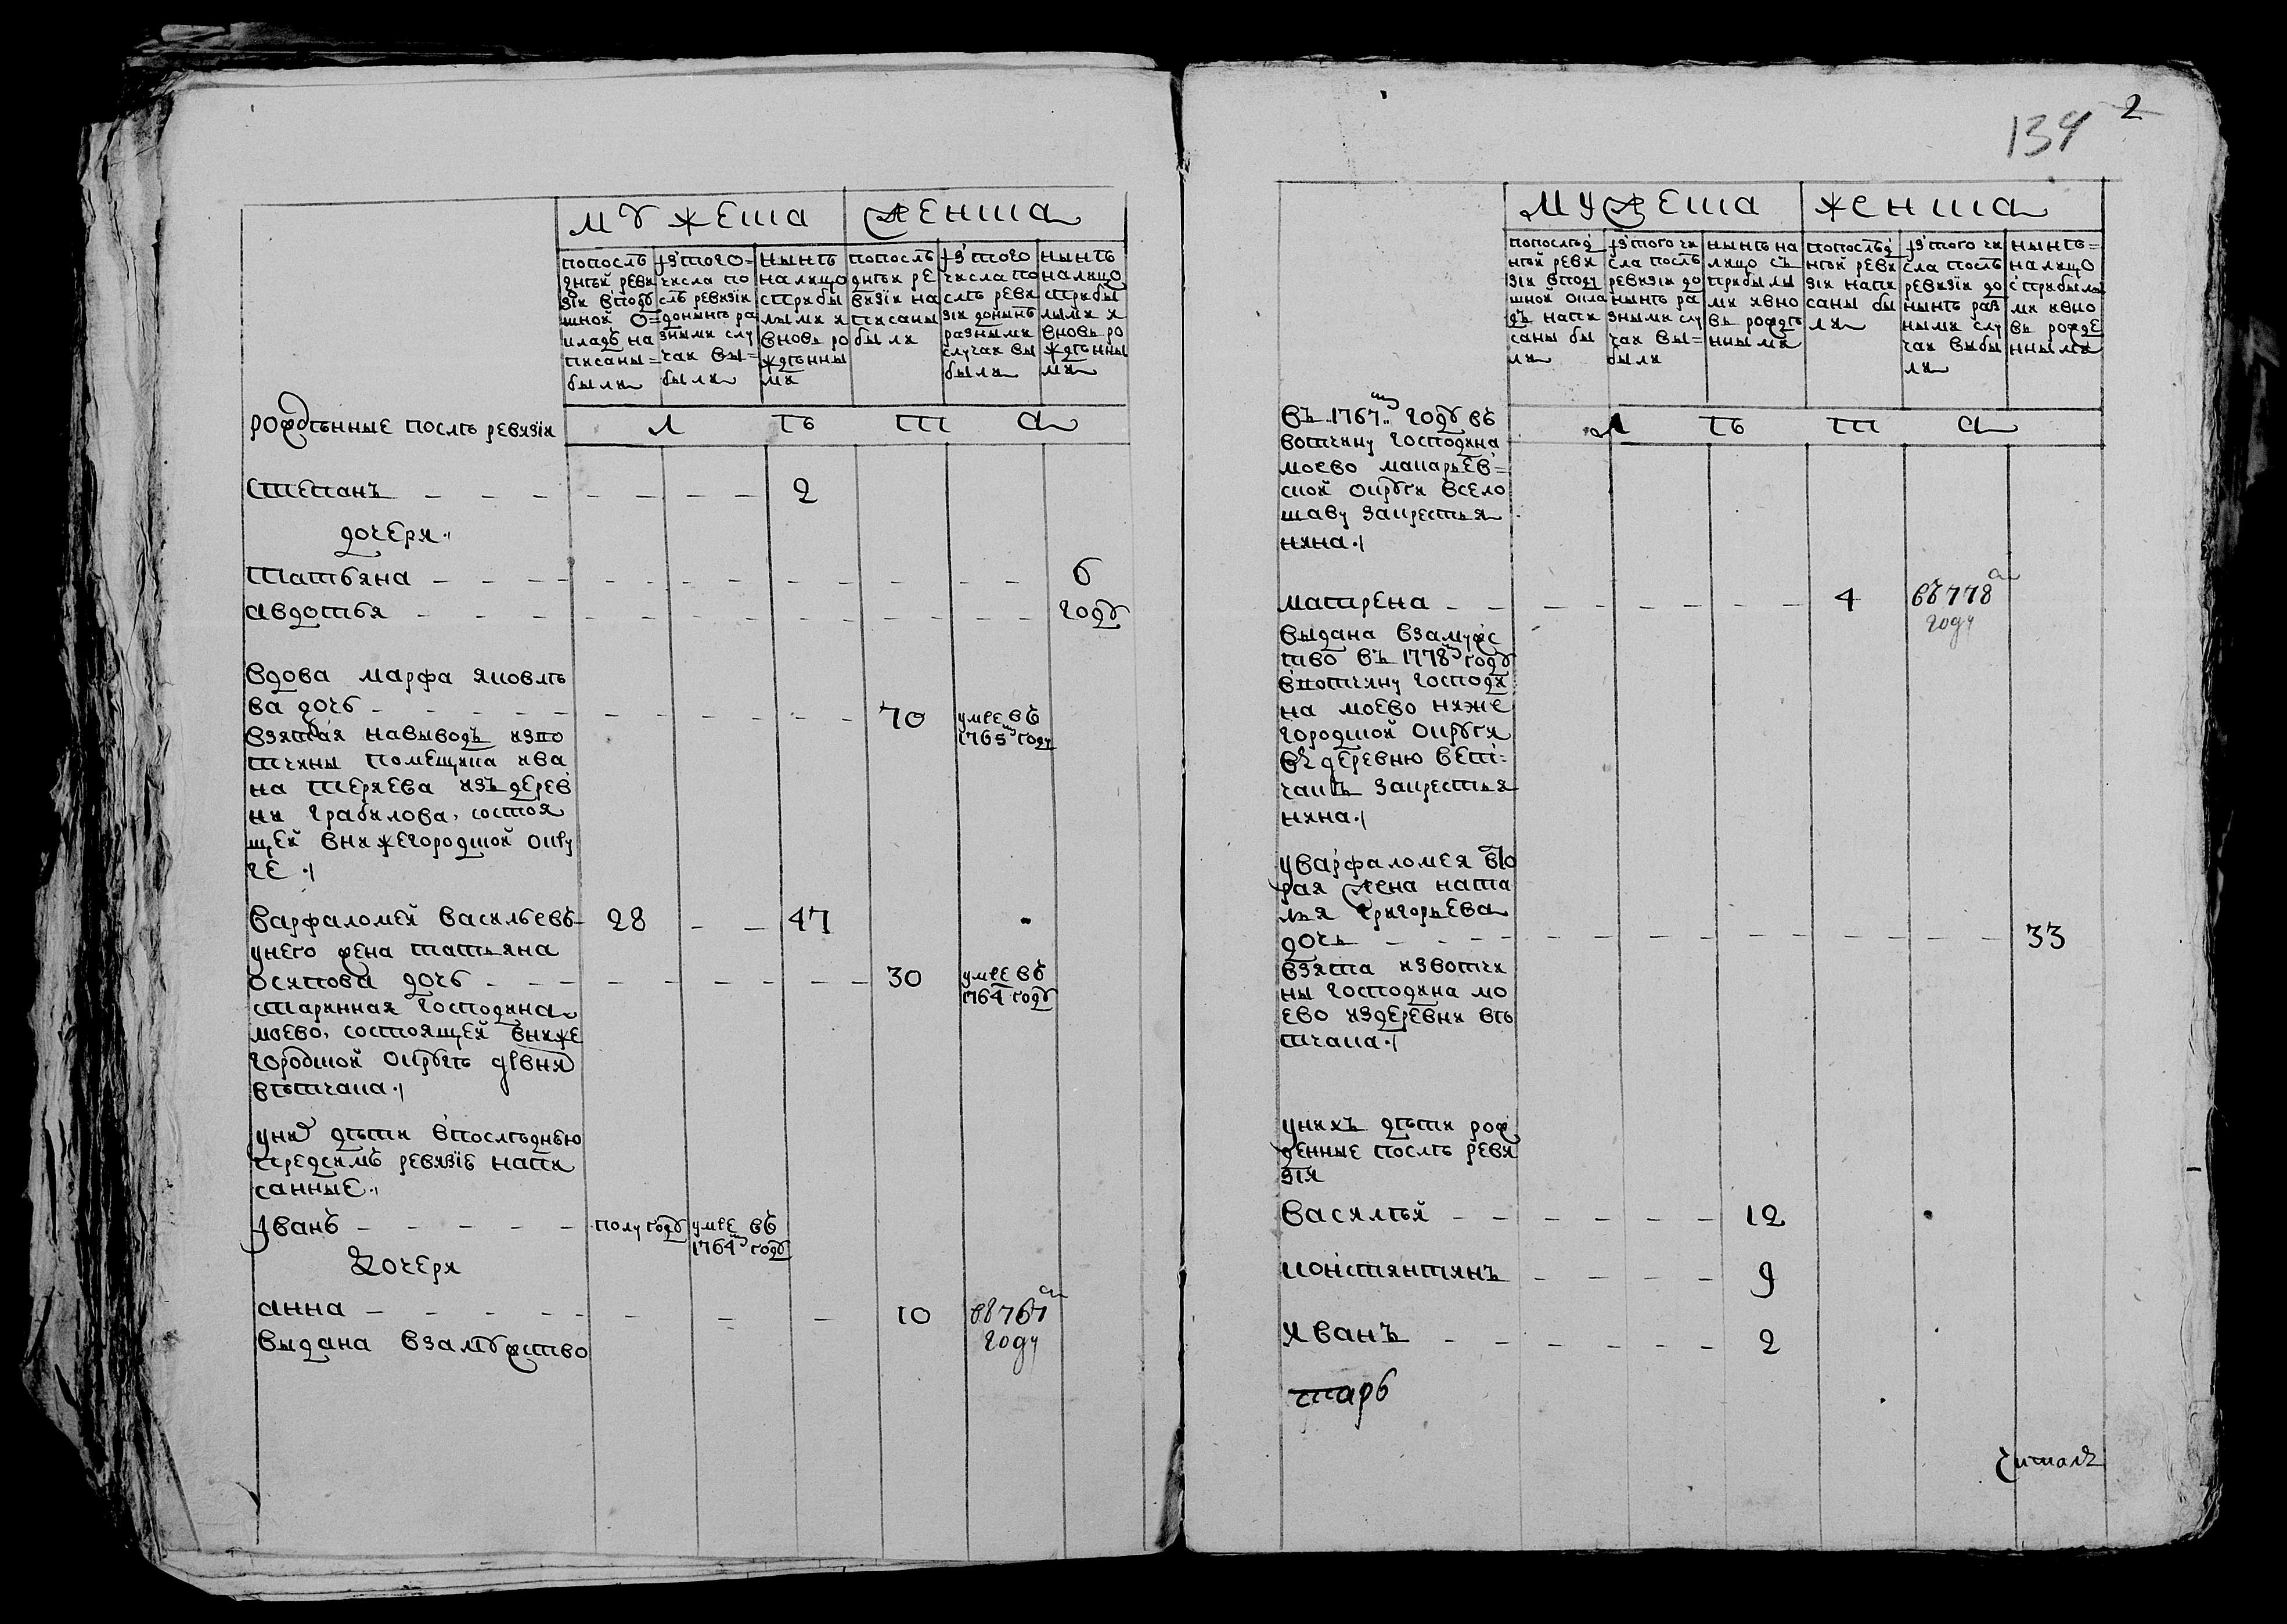 мужеска женска
по послѣдней ревизіи в подушной окладъ написаны были
из того числа послѣ ревизіи до нынѣ разными случаи выбыли
нынѣ на лицо с прибылыми и вновь рожденными
по послѣдней ревизіи написаны были
из того числа послѣ ревизіи до нынѣ разными случаи выбыли
нынѣ на лицо с прибылыми и вновь рожденными
рожденные послѣ ревизіи
Л ѣ т а
степанъ 2
дочери
татьяна 6
авдотья году
вдова марфа яковлѣ
ва дочь 70 умре въ
1765м году
взятая на выводъ из во
тчины помещика ива
на теряева изъ дерев
ни грабилова, состоя
щей в нижегородской окру
ге
варфаломей васильевъ 28 47
у него жена татьяна
осипова дочь 30 умре въ
1764 году
старинная господина
моево, состоящей в ниже
городской округѣ д҃евни
вѣтчака
у них дѣти в послѣднею
пред сим ревизіе напи
санные
Іванъ полугоду умре въ
1764м году
Дочери
анна 10 въ 767м
году
выдана в замужство
134 2
мужеска женска
по послѣдней ревизіи в подушной окладъ написаны были
из того числа послѣ ревизіи до нынѣ разными случаи выбыли
нынѣ на лицо съ прибылыми и вновь рожденными
по послѣдней ревизіи написаны были
из того числа послѣ ревизіи до нынѣ разными случаи выбыли
нынѣ на лицо с прибылыми и вновь рожденными
Л ѣ т а
въ 1767м году въ
вотчину господина
моево макарьев=
ской округи в село
шаву за крестья
нина
матрена 4 въ 778м
году
выдана в замужс
тво въ 1778м году
в вотчину господи
на моево ниже
городской округи
въ деревню вет=
чакъ за крестья
нина
у варфаломея вто
рая жена ната
лья григорьева
дочь 33
взята из вотчи
ны господина мо
ево из деревни вѣ
тчака
у нихъ дѣти рож
денные послѣ реви
зіи
василѣй 12
константинъ 9
иванъ 2
читалъ